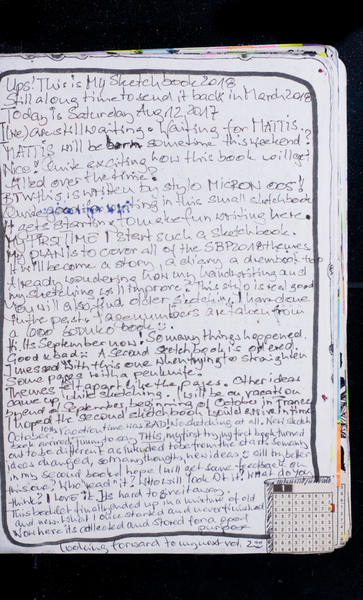 Ups! This is My Sketchbook 2018
Still a long time to send it back in March 2018
Today is Saturday Aug 12 2017
I (we) are still waiting. Waiting for MATTIS.
MATTIS will be born sometime this weekend?
Nice! Quite exciting how this book will get
filled over the time?
BTW this is written by stylo MICRON 005!
Quite good for writing in this small sketchbook
It gets started to make fun writing here.
My FIRST TIME I start such a sketchbook.
My PLAN is to cover all of the SBP 2018 themes
It will become a story, a diary, a dreambook too
Already wondering how my handwriting and
my sketching will improve? This stylo is real good
You will also find older sketching I have done
in the past. Page numbers are taken from
1000 SODUKO book
Hi its September now. So many things happened
Good & bad: A second sketchbook is opened.
I messed with this one when trying to straighten
some pages with a penknife.
Themes fell apart like the pages. Other ideas
came up while sketching. I will be on vacation
by end of September beginning of October in France
I hoped the second sketchbook would arrive in time
October 10th Vacation time was BAD! No sketching at all. New sketch
book arrived funny to say THIS, my first try my first book turned
out to be different as intended to be from the start. So many
ideas changed, so many though, new ideas will try better
in my second book. I hope I will get some feedback on
this one? Who read it? Who will look at it? What do you
think? I love it. Its hard to give it away.
This booklet finally ended up in a mixture of old
and new. What I once started and never finished
Now here its collected and stored for a good
purpose
Looking forward to my next vol. 2